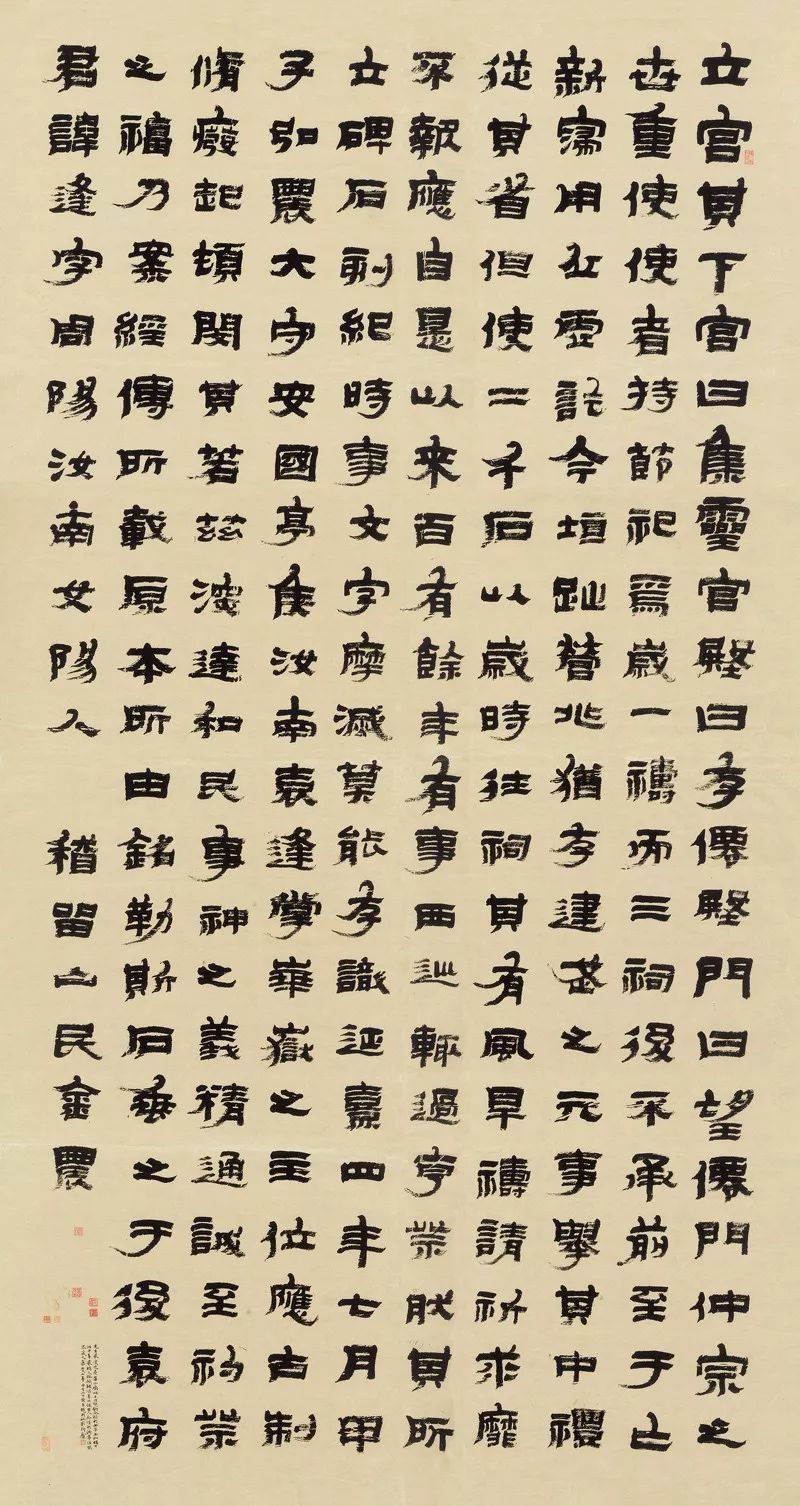 立宮其下宮曰集靈宮殿曰存僊殿門曰望僊門仲宗之
世重使使者持節祀焉歲一禱而三祠後不承前至于亡
新寖用丘虛訖今垣趾營兆猶存建武之元事舉其中禮
從其省但使二千石以歲時往祠其有風旱禱請祈求靡
不報應自是以来百有餘年有事西巡輒過亨祭然其所
立碑石刻紀時事文字摩滅莫能存識延熹四年七月甲
子弘農大守安國亭侯汝南袁逢掌華嶽之主位應古制
脩癈起頓閔其若茲深達和民事神之義精通誠至礿祭
之福乃案經傳所載原本所由銘勒斯石垂之于後袁府
君諱逢字周陽汝南女陽人
稽留山民金農